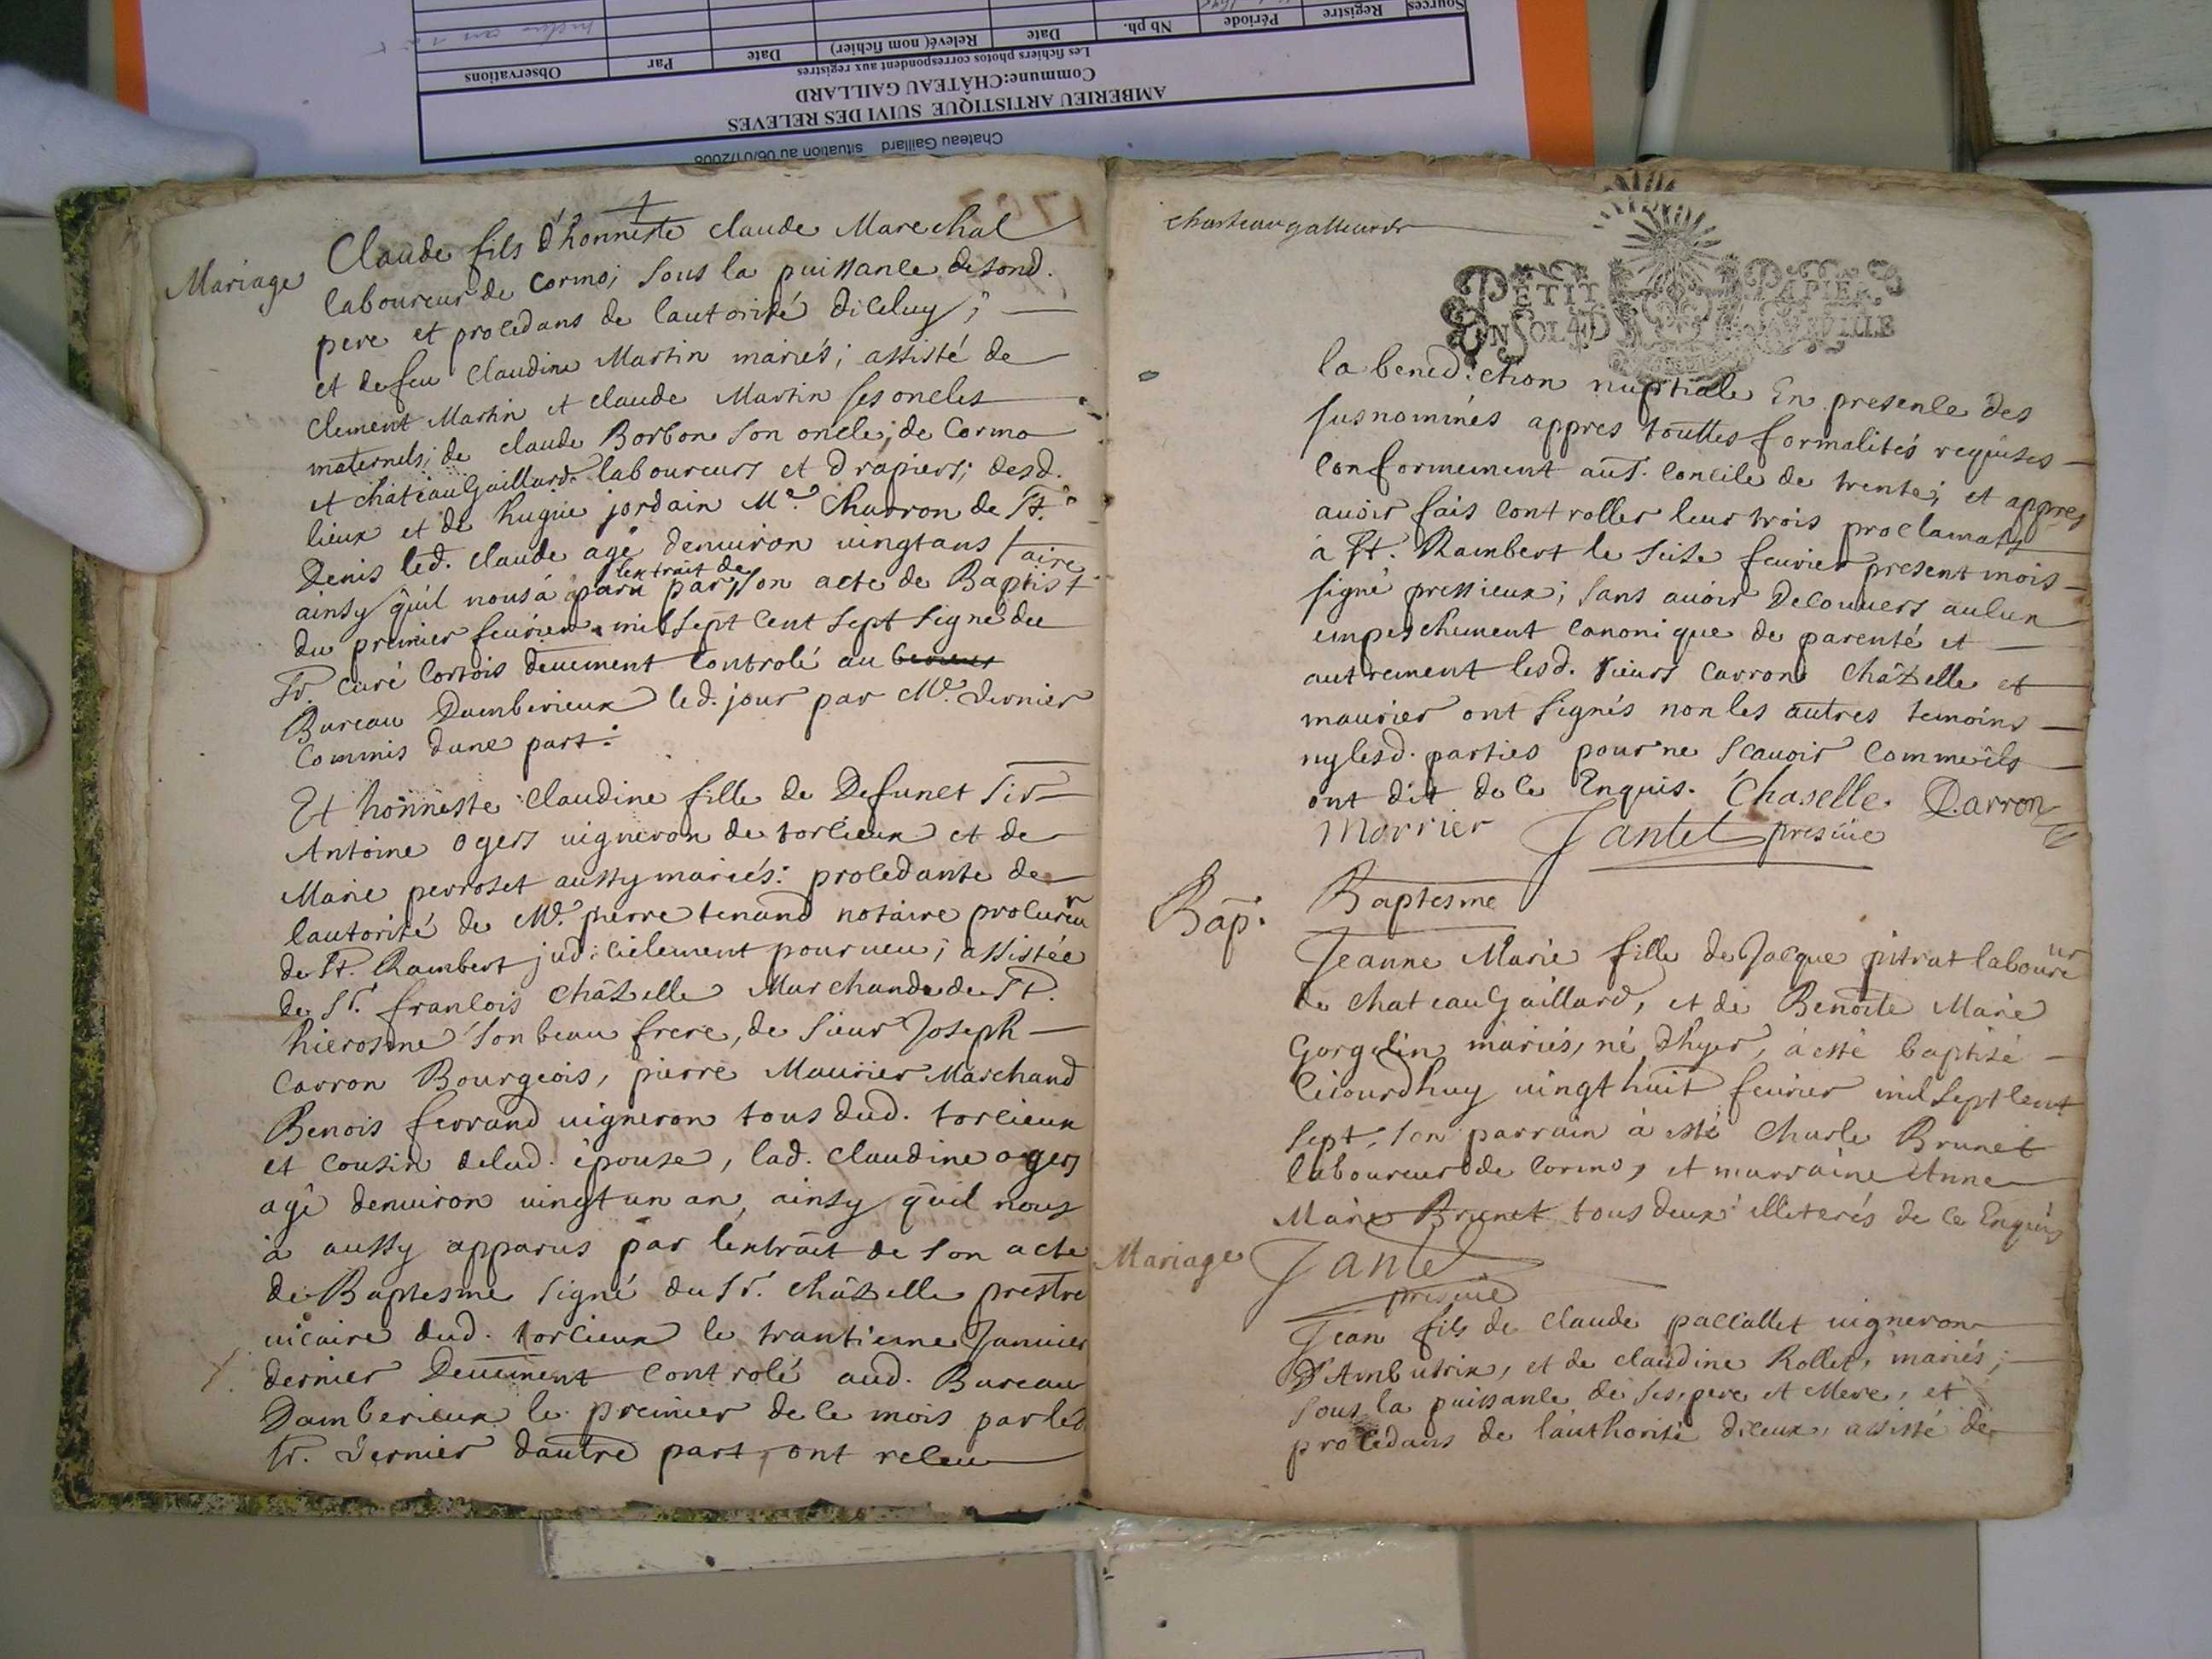 Sources Registre Période Nb ph. Date Relevé( nom fichier) Date Par Observations
Les fichiers photos correspondent aux registres
Commune:CHÂTEAU GAILLARD
AMBERIEU ARTISTIQUE SUIVI DES RELEVES
Chateau Gaillard situation au 06/01/2008
Mariage
Claude fils d'honneste claude Marechal
laboureur de Cormoz sous la puissance de sond.
pere et procedans de lautorité diceluy ;
et de feu Claudine Martin mariés ; assisté de
Clement Martin et claude Martin ses oncles
maternels ; de claude Borbon son oncle ; de Cormo
et chateauGaillard laboureurs et drapiers ; desd.
lieux et de hugue jordain Me. Charron de St.
Denis led. claude agé denuiron uingt ans
ainsy quil nous á paru par lextrait de son acte de Baptistaire
du premier feurier mil sept cent sept signé du
Sr. curé Cortois deuement Controlé au
Bureau Damberieux led. jour par Me. dernier
Commis dune part :
Et honneste claudine fille de Defunct sir
Antoine Ogers uigneron de torcieux et de
Marie perroset aussy mariés : procedante de
lautorité de Me. pierre tenand notaire procureur
de St. Rambert judicielement pourueu ; assistée
de Sr. francois Châzelle Marchand de St.
hierosme son beau frere, de sieur Joseph
Carron Bourgeois, pierre Maurier Marchand
Benois ferrand uigneron tous dud. torcieux
et Cousin de lad. épouse, lad. Claudine ogers
agé denuiron uingt un an, ainsy quil nous
à aussy apparus par lextrait de son acte
de Baptesme signé du Sr. Châzelle prestre
uicaire dud. torcieux le trantieme Januier
dernier Deuement Controlé aud. Bureau
Damberieux le premier de ce mois par led.
Sr. dernier dautre part, ont receu
chasteaugalliard
PETIT PAPIER
EN SOL 4D LA FEVILLE
la benediction nuptiale En presence des
susnominés appres touttes formalités requises
Conformement aus. Concile de trente ; et appres
auoir fais Controller leur trois proclamats
à St. Rambert le seise feurier present mois
signé pressieux ; sans auoir Decouuers aucun
empeschement Canonique de parenté et
autrement lesd. sieurs Carron Châzelle et
maurier ont signés non les autres temoins
ny lesd. parties pour ne scauoir comme ils
ont dit de ce Enquis. Chaselle. D.arron
Morrier Jantet
Bap.
Baptesme
Jeanne Marie fille de Jacque pitrat laboureur
de chateauGaillard, et de Benoite Marie
Gorgelin mariés, né dhyer, à esté baptisé
Ceiourdhuy uingthuit feurier mil sept cent
sept, son parrain à esté Charle Brunet
laboureur de Cormo, et marraine Anne
Marie Brunet tous deux illeterés de ce Enquis
Jantet
Mariage
Jean fils de Claude paccallet uigneron
D'Ambutrix, et de claudine Rollet, mariés ;
sous la puissance de ses pere et Mere, et
procédans de l'authorité diceux, assisté de